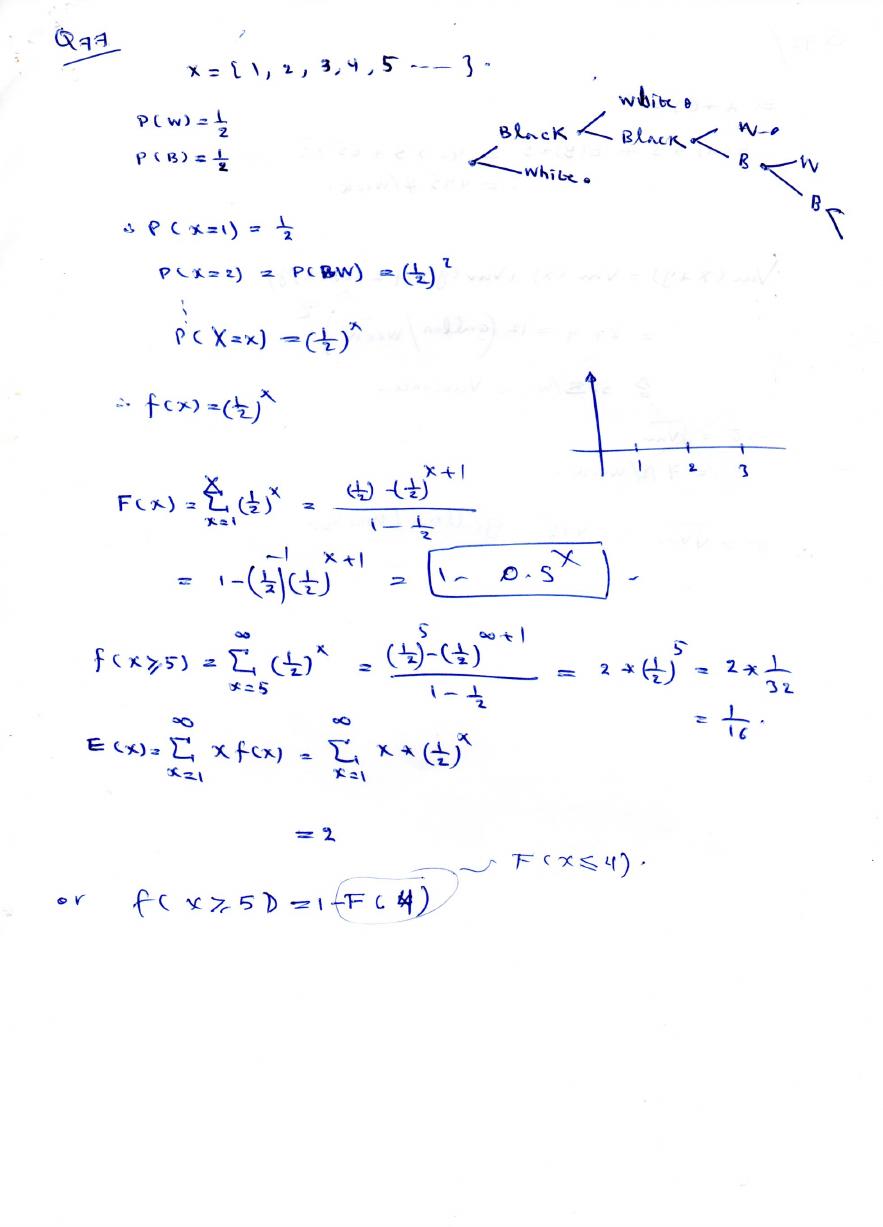 Q77
x = { 1, 2, 3, 4, 5 ---- } .
P(W) = 1/2
P(B) = 1/2
White
Black
Black
W
White
B
W
B
∴ P(x=1) = 1/2
P(x=2) = P(BW) = (1/2)^2
P(X=x) = (1/2)^x
∴ f(x) = (1/2)^x
1 2 3
F(x) = Σ_{x=1}^{x} (1/2)^x = ((1/2) - (1/2)^{x+1}) / (1 - 1/2)
= 1-(1/2)^{-1}(1/2)^{x+1} = 1 - 0.5^x
f(x≥5) = Σ_{x=5}^{∞} (1/2)^x = ((1/2)^5 - (1/2)^{∞+1}) / (1 - 1/2) = 2 * (1/2)^5 = 2 * 1/32
= 1/16 .
E(x) = Σ_{x=1}^{∞} x f(x) = Σ_{x=1}^{∞} x * (1/2)^x
= 2
F(x≤4) .
or f(x≥5) = 1 - F(4)